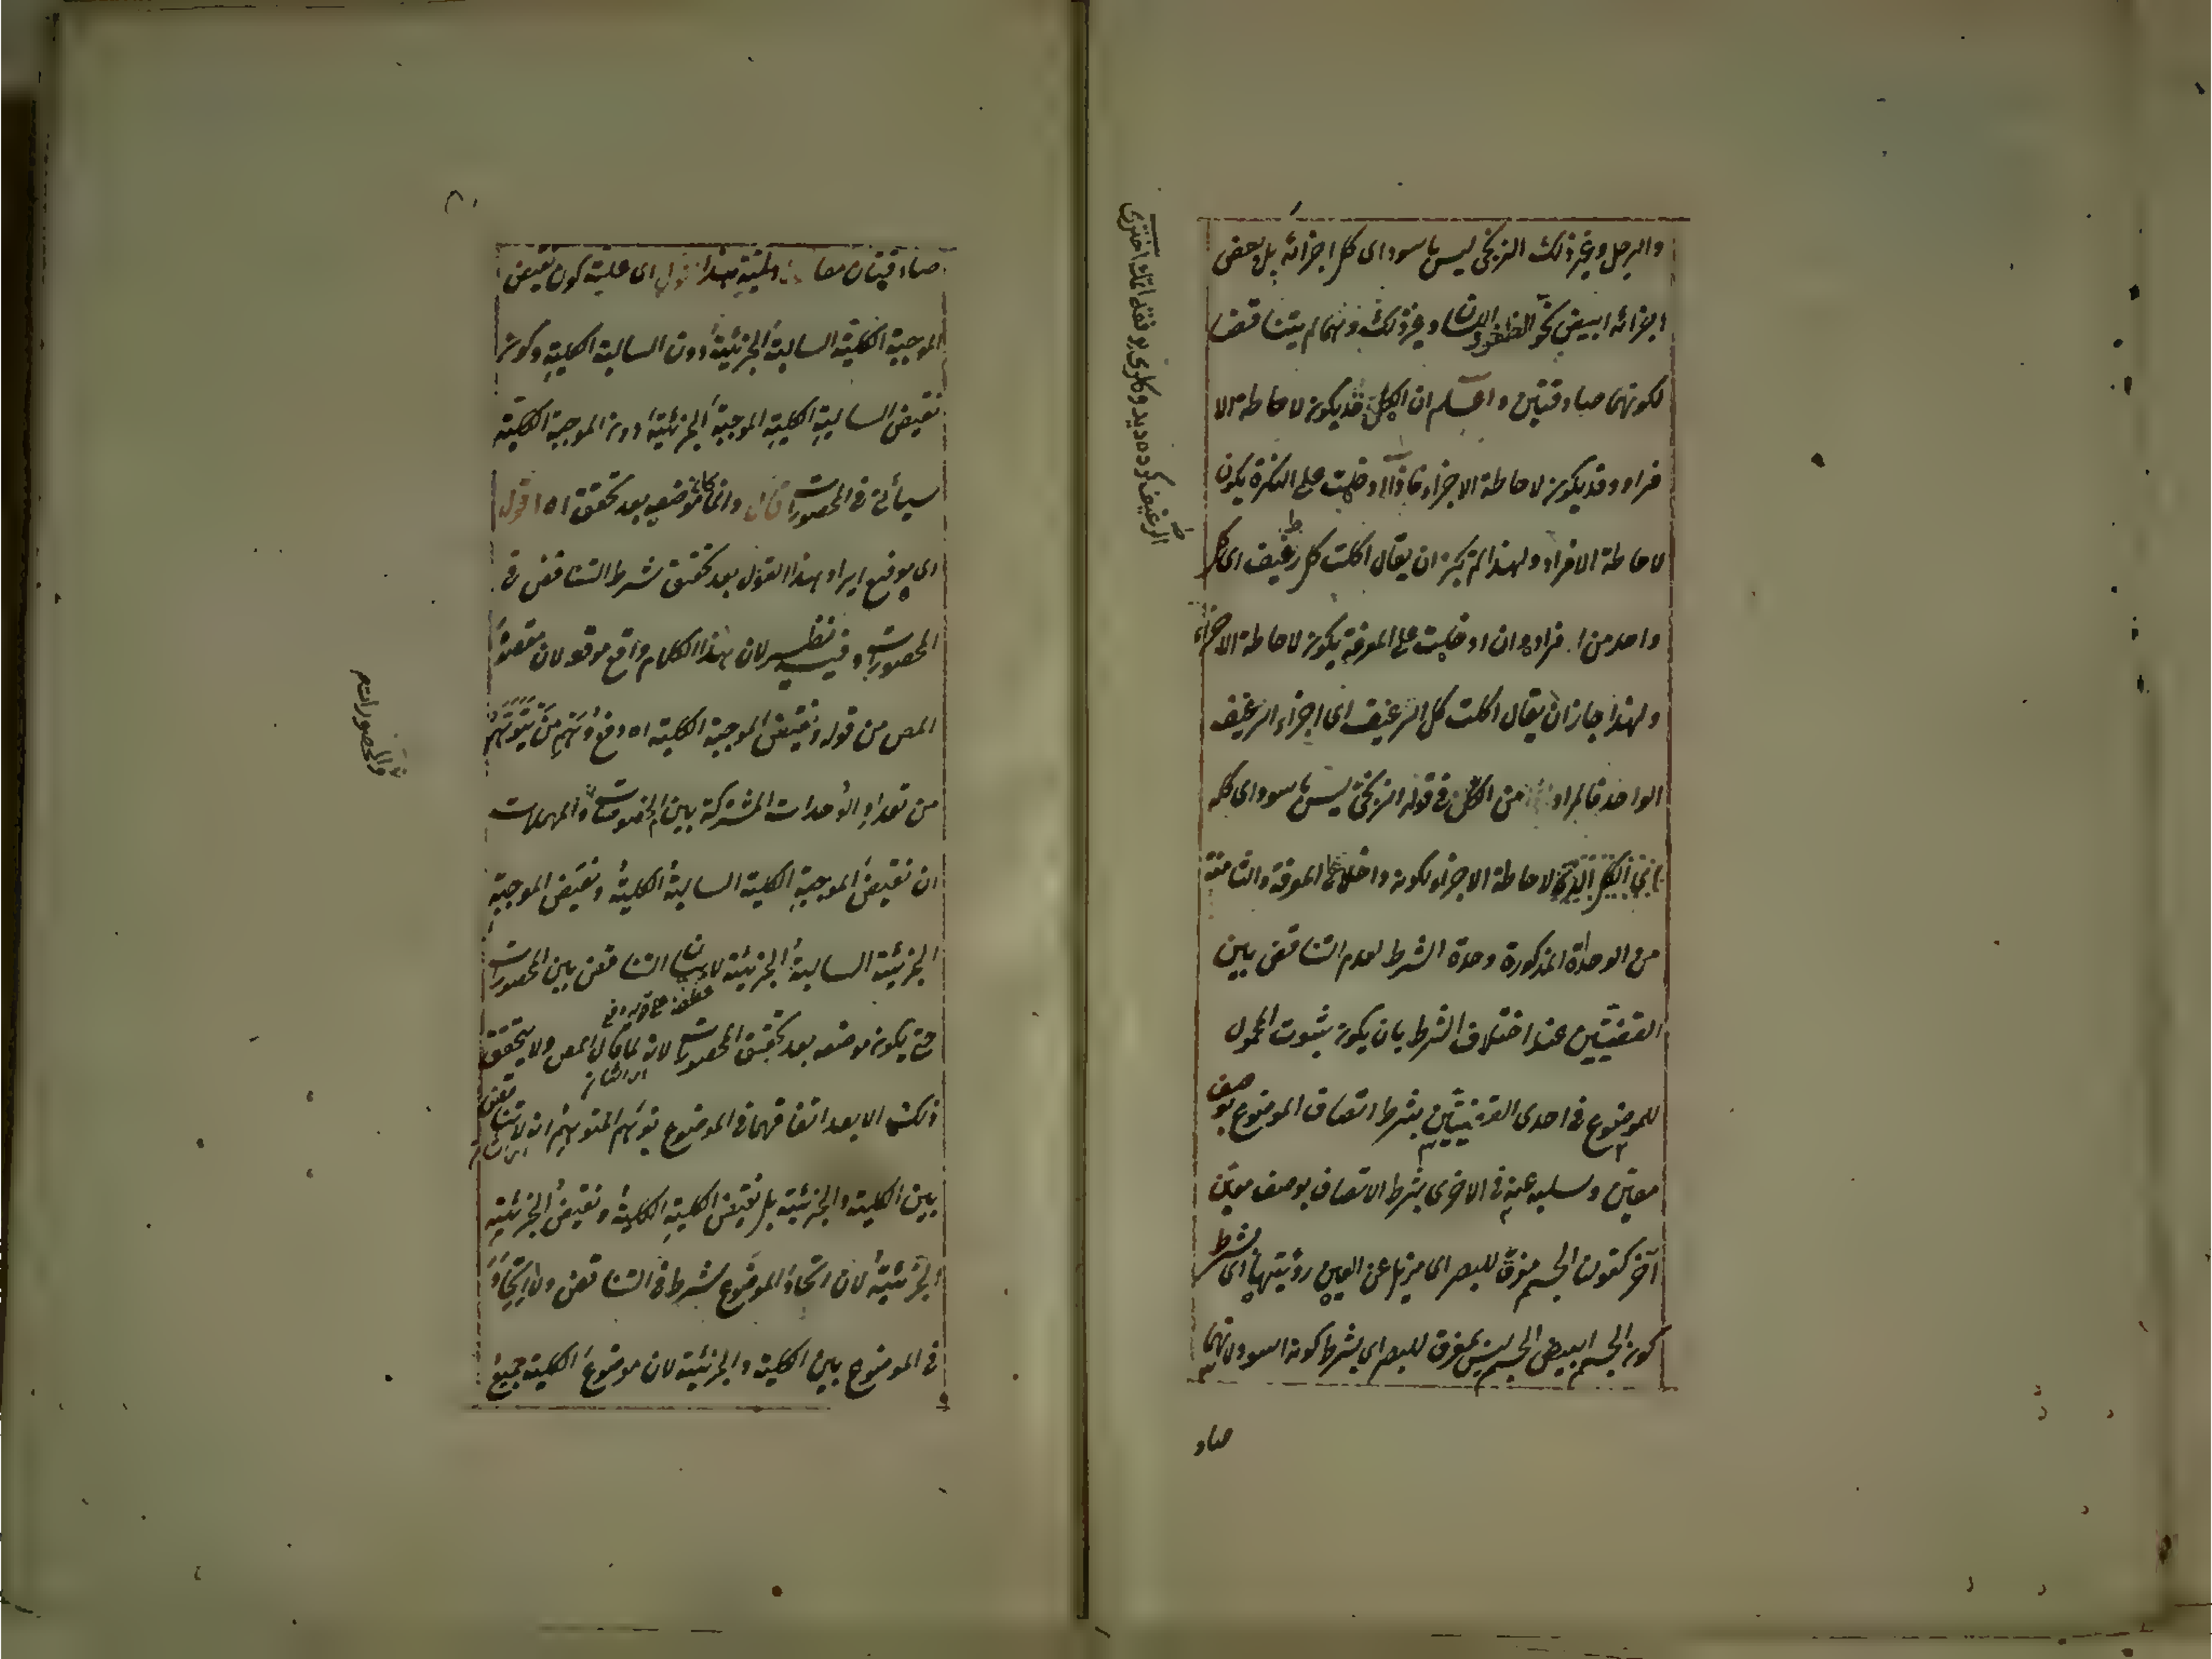 والرجل وغير ذلك الزنجى ليس باسود اى كل اجزائه بل بعض
اجزائه ابيض نحو الظفر والاسنان وغير ذلك ونهما لم يتناقضا
لكونهما صادقتين واعلم ان الكل قد يكون لاحاطة الا
فراد وقد يكون لاحاطة الاجزاء فاذا ادخلت على النكرة يكون
لاحاطة الافراد ولهذا لم يجز ان يقال اكلت كل رغيف اى كل
واحد من افراده وان ادخلت على المعرفة يكون لاحاطة الاجزاء
ولهذا جاز ان يقال اكلت كل الرغيف اى اجزاء الرغيف
الواحد فالمراد من الكل فى قوله الزنجى ليس باسود اى كله
لاحاطة الاجزاء لكونه داخلا على المعرفة والثامنة
من الوحداة المذكورة وحدة الشرط لعدم التناقض بين
القضيتين عند اختلاف الشرط بان يكون ثبوت المحمول
للموضوع فى احدى القضيتين بشرط اتصاف الموضوع بوصف
معين وسلبه عنه فى الاخرى بشرط الاتصاف بوصف معين
آخر كقولنا الجسم مفرق للبصر اى مزيل عن العين رؤيتها اى بشرط
كون الجسم ابيض الجسم ليس بمفرق للبصر اى بشرط كونه اسود لانهما
صاد
صادقتان معا اى علية كون نقيض
الموجبة الكلية السالبة الجزئية دون السالبة الكلية وكون
نقيض السالبة الكلية الموجبة الجزئية دون الموجبة الكلية
سيأتى فى المحصورات قال وانما كان موضعه بعد تحقق اه اقول
اى موقع ايراد هذا القول بعد تحقيق شرط التناقض فى
المحصورات وفيه نظر لان هذا الكلام واقع موقعه لان مقصود
المص من قوله ونقيض الموجبة الكلية اه دفع وهم من يتوهم
من تعداد الوحدات المشتركة بين المخصوصات والمهملات
والمحصورات
ان نقيض الموجبة الكلية السالبة الكلية ونقيض الموجبة
الجزئية السالبة الجزئية لا بيان التناقض بين المحصورات
حتى يكون موضعه بعد تحقيق المحصورات لانه لما قال المص ولا يتحقق
ذلك الا بعد اتفاقهما فى الموضوع توهم المتوهم انه لا تناقض
بين الكلية والجزئية بل نقيض الكلية الكلية ونقيض الجزئية
الجزئية لان اتحاد الموضوع شرط فى التناقض ولا اتحاد
فى الموضوع بين الكلية والجزئية لان موضوع الكلية جميع